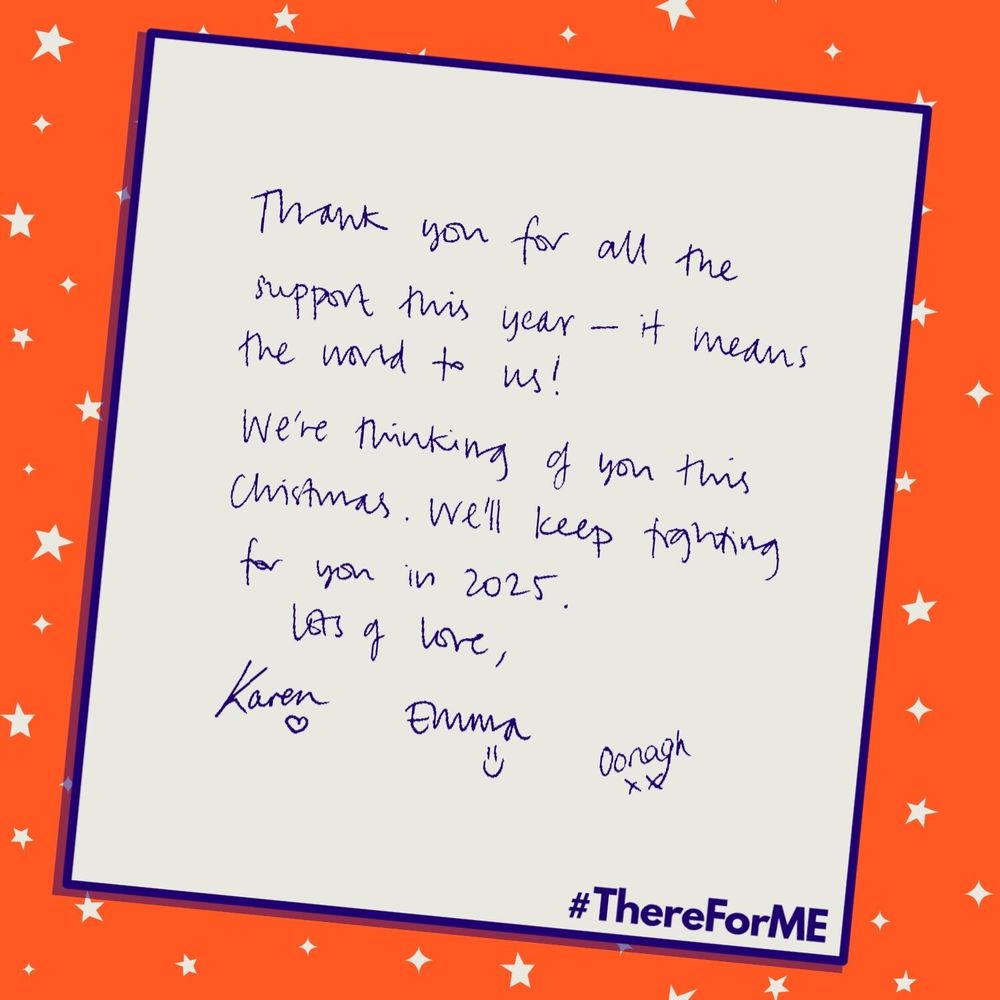 Thank you for all the
support this year — it means
the world to us!
We're thinking of you this
Christmas. We'll keep fighting
for you in 2025.
Lots of love,
Karen Emma Oonagh
xx
#ThereForME